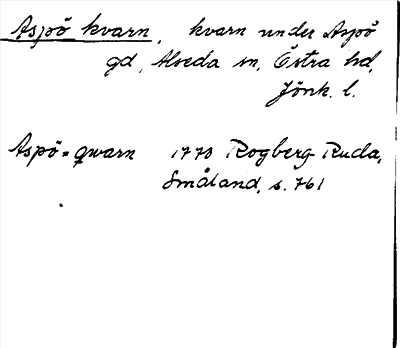 Aspö kvarn, kvarn under Aspö
gd, Alseda sn, Östra hd,
Jönk. l.
Aspö=qwarn 1770 Rogberg-Ruda,
Småland, s. 761